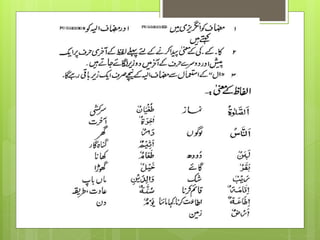 ۱ مضاف کو انگریزی میں POSSESSED اور مضاف الیہ کو
کہتے ہیں
۲ کا، کے، کی کے معنی پیدا کرنے کے لئے پہلے لفظ کے آخری حرف پر ایک
پیش اور دوسرے حرف کے آخر میں دو زیر لگائے جاتے ہیں۔
۳ "ال" کے استعمال سے مضاف الیہ کے نیچے صرف ایک زیر باقی رہے گا۔
الفاظ کے معنی :-
اَلصَّلٰوةُ نماز طُغْيَانٌ سرکشی
آخِرَةٌ آخرت
اَلنَّاسُ لوگوں دَارٌ گھر
أَثِيْمٌ گناہ گار
لَبَنٌ دودھ طَعَامٌ کھانا
بَقَرٌ گائے خَيْلٌ گھوڑا
رَيْبٌ شک وَالِدَيْنِ ماں باپ
إِقَامَةٌ قائم کرنا سُنَّةٌ عادت، طریقہ
إِطَاعَةٌ اطاعت کرنا کہا ماننا يَوْمٌ دن
أَرْضٌ زمین